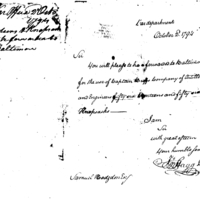 War Office 2d Oct
1794
Knapsacks
to forward to
Baltimore
War department
October 2d 1794
Sir
You will please to have forwarded to Baltimore
for the use of Captain company of Artillery
and Engineers fifty six and fifty six
Knapsacks.
I am
Sir
with great esteem
Your humble Serv
Samuel Hodgdon Esq